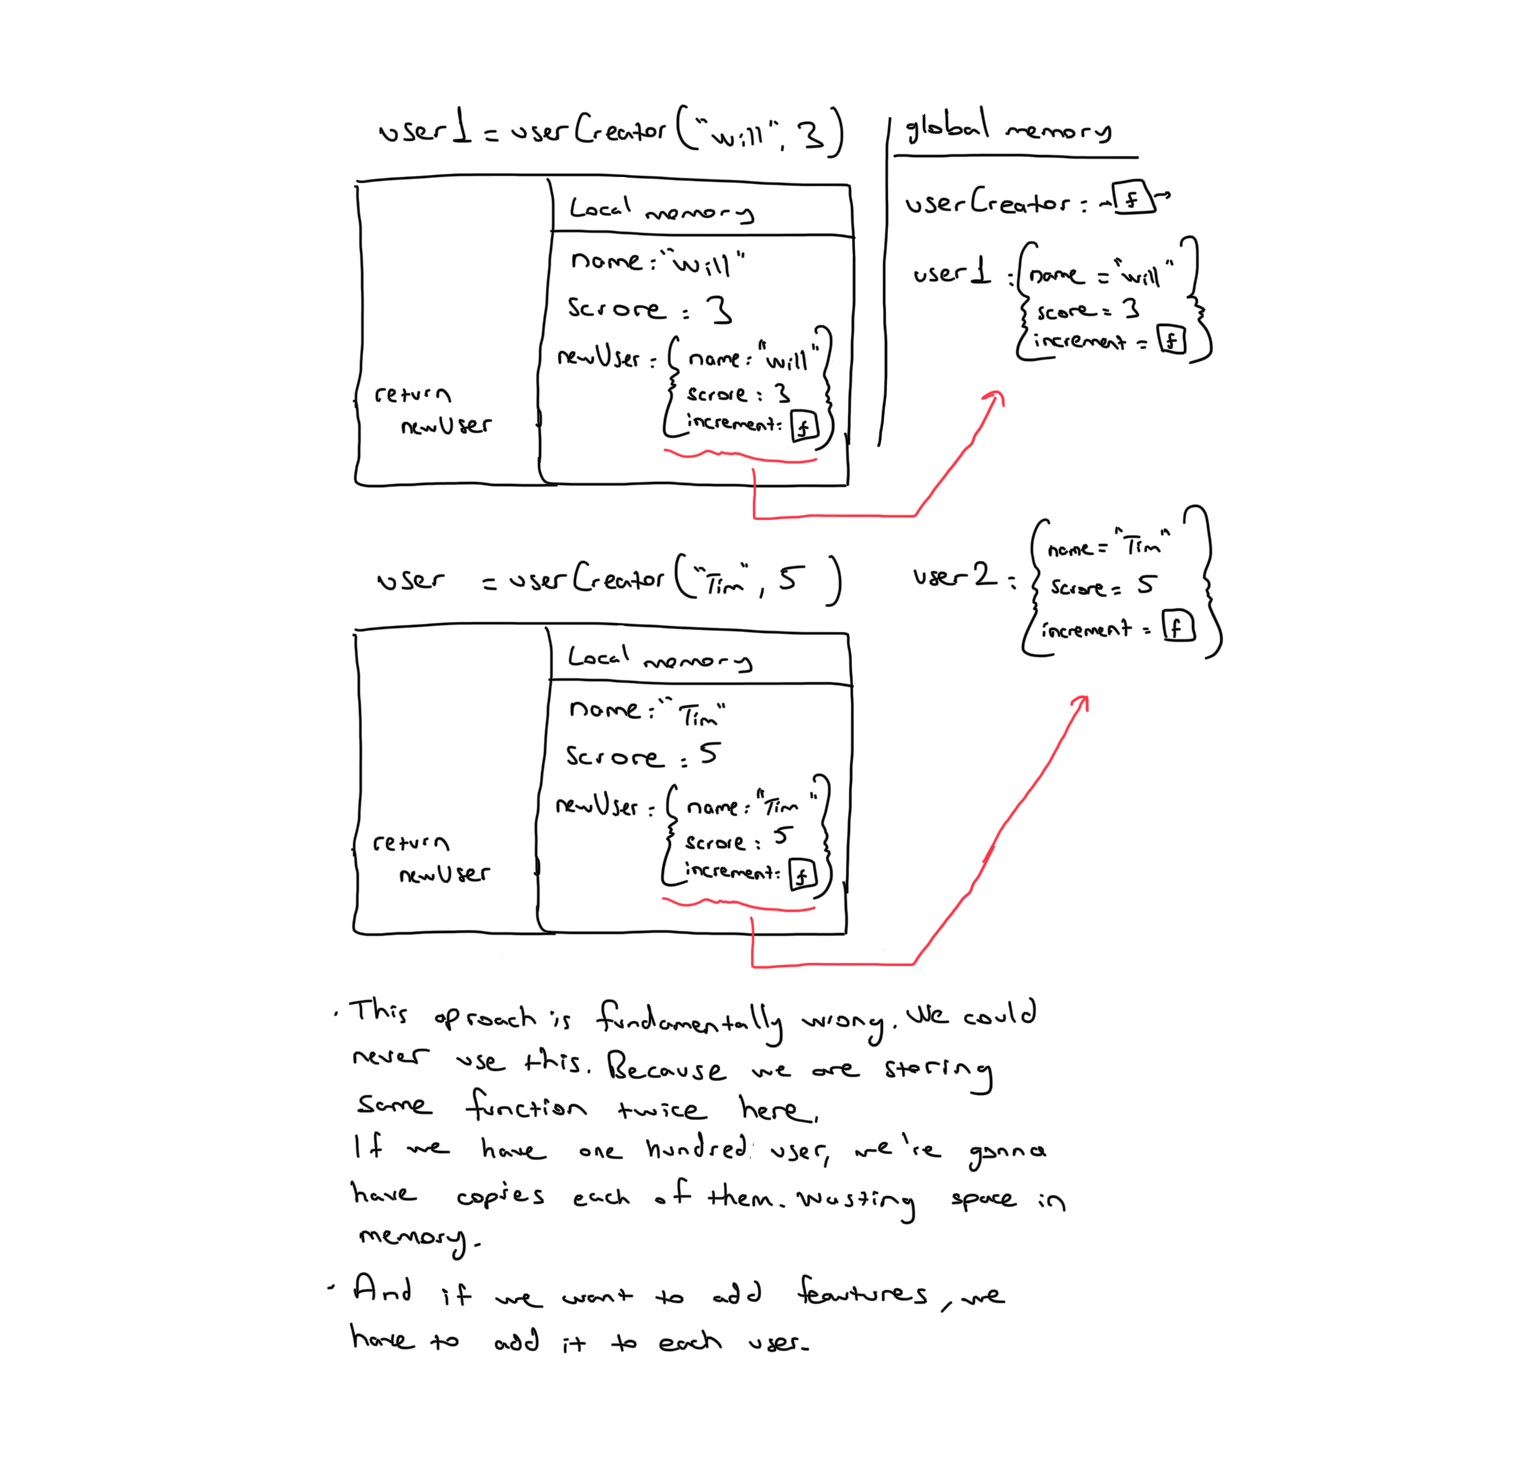 user1 = userCreator("will", 3)
Local memory
name: "will"
scrore : 3
newUser : { name: "will"
scrore : 3
increment: f }
return
newUser
global memory
userCreator : f
user1 : { name = "will"
score = 3
increment = f }
user = userCreator("Tim", 5 )
Local memory
name: "Tim"
scrore : 5
newUser : { name: "Tim"
scrore : 5
increment: f }
return
newUser
user2 : { name = "Tim"
scrore = 5
increment = f }
· This aproach is fundamentally wrong. We could
never use this. Because we are storing
same function twice here.
If we have one hundred user, we're gonna
have copies each of them. wasting space in
memory.
· And if we want to add features, we
have to add it to each user.